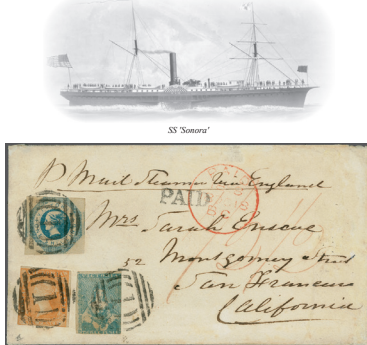 SS 'Sonora'
P Mail Steamer via England
PAID
Mrs Sarah
52 Montgomery Street
San Francisco
California